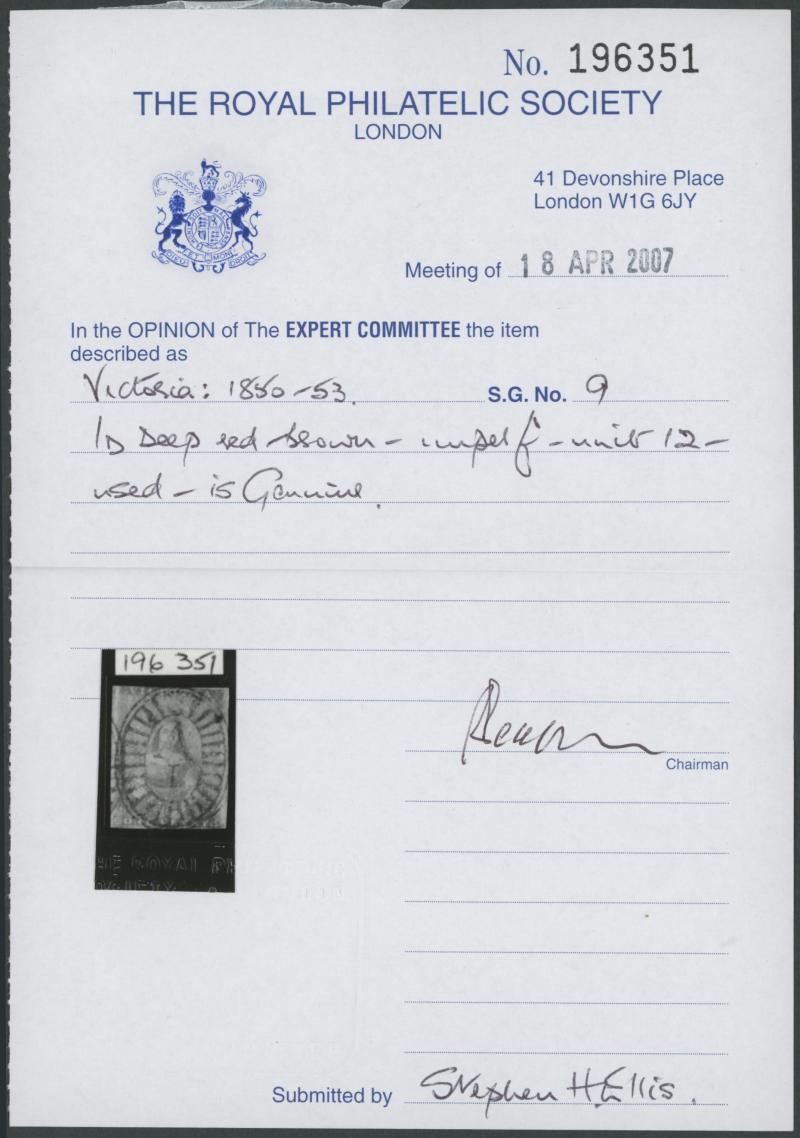 No. 196351
THE ROYAL PHILATELIC SOCIETY
LONDON
41 Devonshire Place
London W1G 6JY
Meeting of 18 APR 2007
In the OPINION of The EXPERT COMMITTEE the item
described as
Victoria: 1850-53. S.G. No. 9
1D Deep red-brown - imperf - unit 12 -
used - is Genuine.
196 351
Chairman
HE ROYAL PHI
OCIETY
Submitted by Stephen H. Ellis.